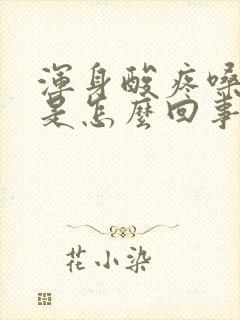 渾身酸疼嗓
是怎麼回事
花小染